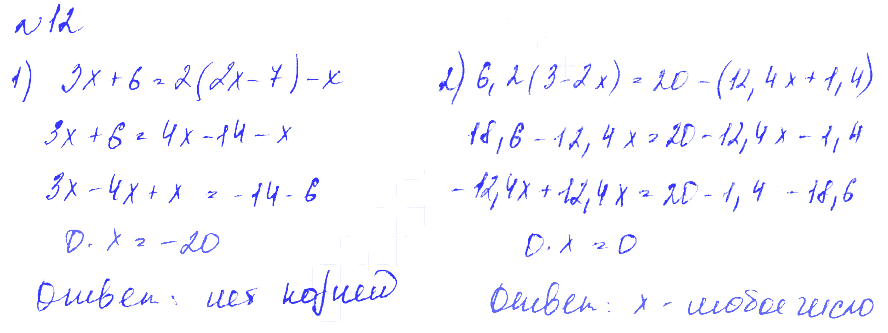 №12
1) 3x + 6 = 2(2x - 7) - x
3x + 6 = 4x - 14 - x
3x - 4x + x = -14 - 6
0 · x = -20
Ответ: нет корней
2) 6,2(3 - 2x) = 20 - (12,4x + 1,4)
18,6 - 12,4x = 20 - 12,4x - 1,4
-12,4x + 12,4x = 20 - 1,4 - 18,6
0 · x = 0
Ответ: x - любое число